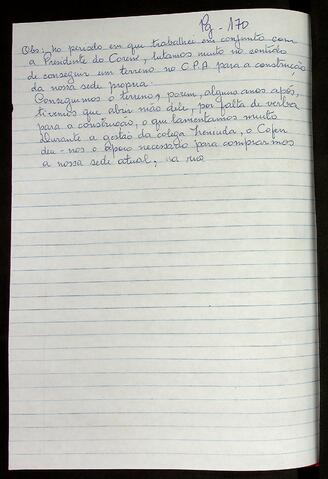 Pg - 170
Obs: no período em que trabalhei em conjunto com
a Presidente do Coren, lutamos muito no sentido
de conseguir um terreno no C.P.A para a construção
da nossa sede própria.
Conseguimos o terreno, porém, alguns anos após,
tivemos que abrir mão dele, por falta de verba
para a construção, o que lamentamos muito
Durante a gestão da colega Irenuda, o Cofen
deu-nos o apoio necessário para comprarmos
a nossa sede atual, na rua